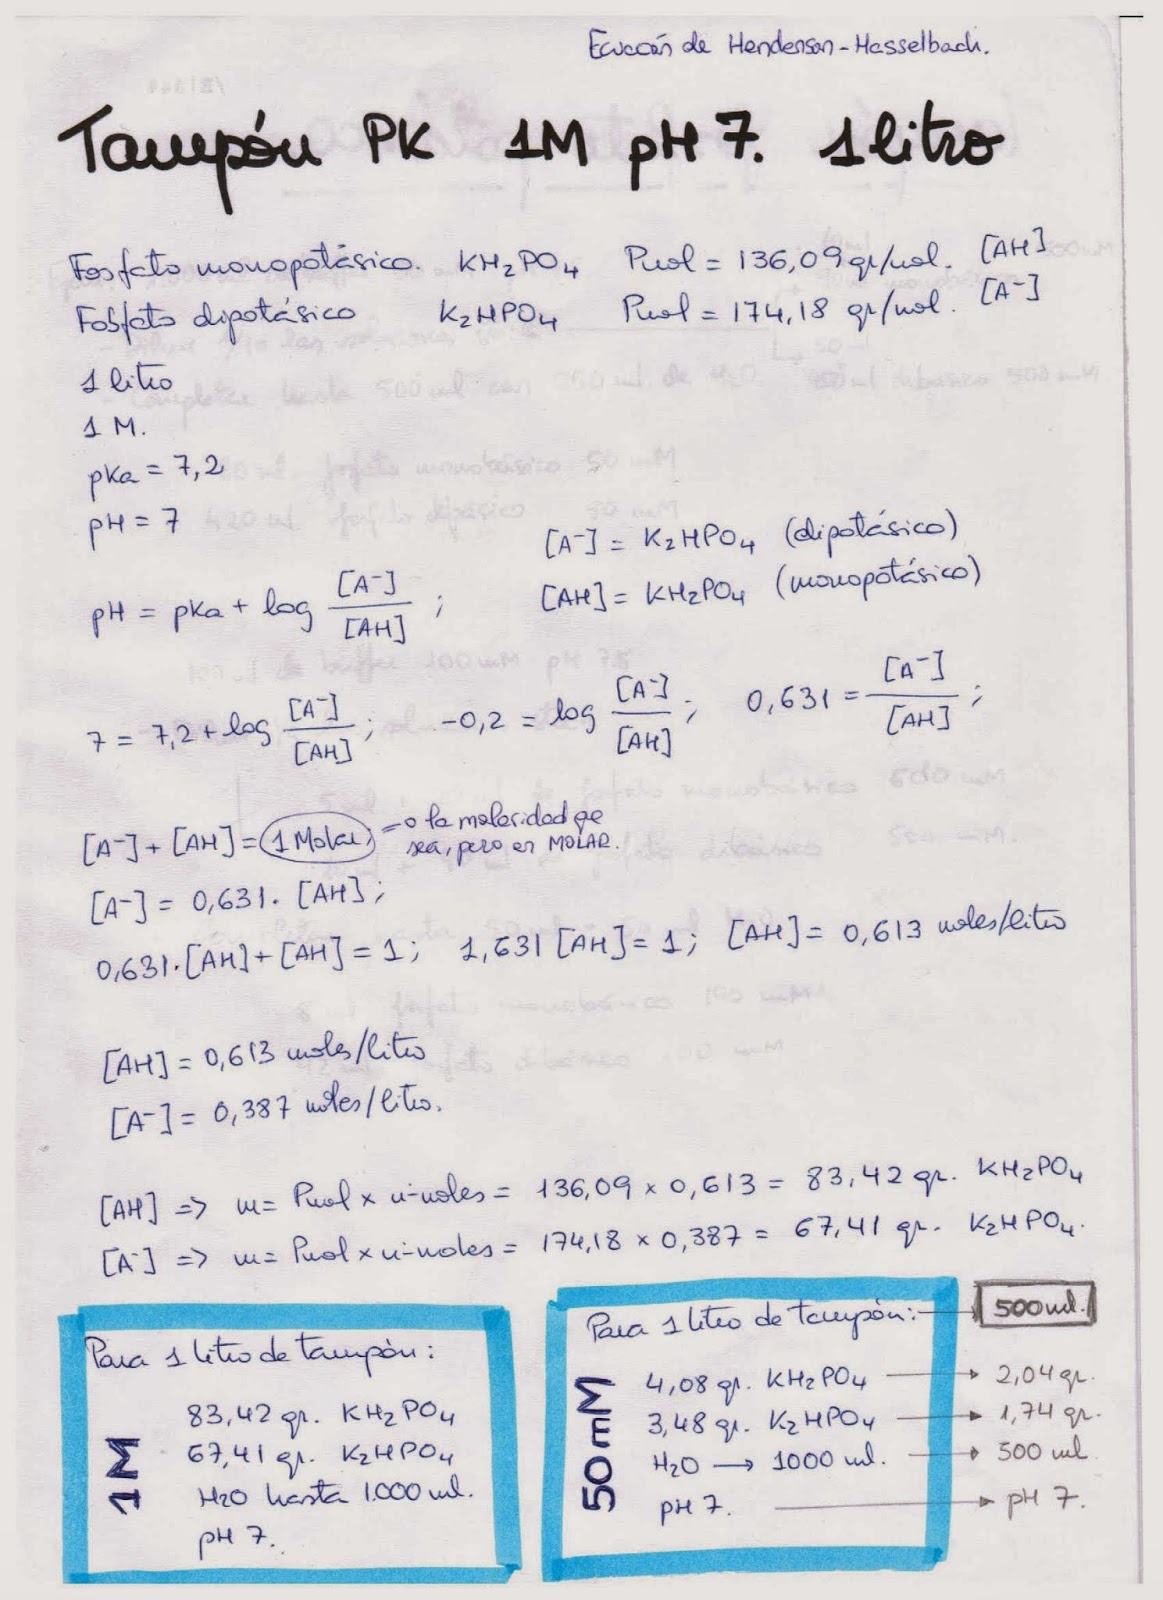 Ecuación de Henderson-Hasselbach.
Tampón PK 1M pH 7. 1 litro
Fosfato monopotásico. KH₂PO₄ Pmol = 136,09 gr/mol. [AH]
Fosfato dipotásico K₂HPO₄ Pmol = 174,18 gr/mol. [A⁻]
1 litro
1 M.
pKa = 7,2
pH = 7
[A⁻] = K₂HPO₄ (dipotásico)
[AH] = KH₂PO₄ (monopotásico)
pH = pKa + log [A⁻]/[AH] ;
7 = 7,2 + log [A⁻]/[AH] ; -0,2 = log [A⁻]/[AH] ; 0,631 = [A⁻]/[AH] ;
[A⁻] + [AH] = 1 Molar, = o la molaridad qe
sea, pero en MOLAR.
[A⁻] = 0,631. [AH] ;
0,631.[AH] + [AH] = 1 ; 1,631 [AH] = 1 ; [AH] = 0,613 moles/litro
[AH] = 0,613 moles/litro
[A⁻] = 0,387 moles/litro.
[AH] => m = Pmol x nº moles = 136,09 x 0,613 = 83,42 gr. KH₂PO₄
[A⁻] => m = Pmol x nº moles = 174,18 x 0,387 = 67,41 gr. K₂HPO₄.
Para 1 litro de tampón :
83,42 gr. KH₂PO₄
67,41 gr. K₂HPO₄
H₂O hasta 1.000 ml.
pH 7.
1M
Para 1 litro de tampón : → 500 ml.
4,08 gr. KH₂PO₄ → 2,04 gr.
3,48 gr. K₂HPO₄ → 1,74 gr.
H₂O → 1000 ml. → 500 ml.
pH 7. → pH 7.
50mM